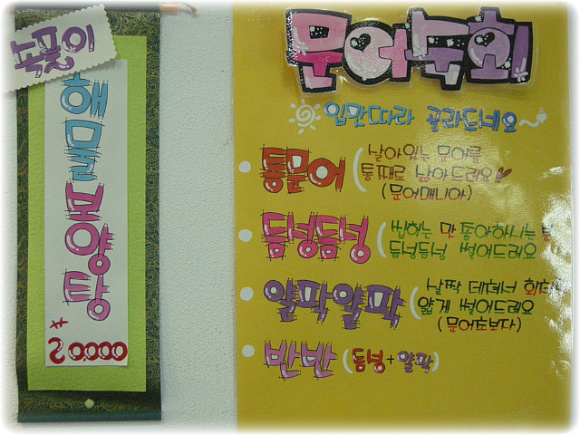 문어숙회
입맛따라 골라드세요~
통문어 (살아있는 문어를
통째로 삶아드려요
(문어매니아)
듬성듬성 (씹히는 맛 좋아하시는
듬성듬성 썰어드려요
얄팍얄팍 (살짝 데쳐서
얇게 썰어드려요
(문어초보자)
반반 (듬성+얄팍)
20000